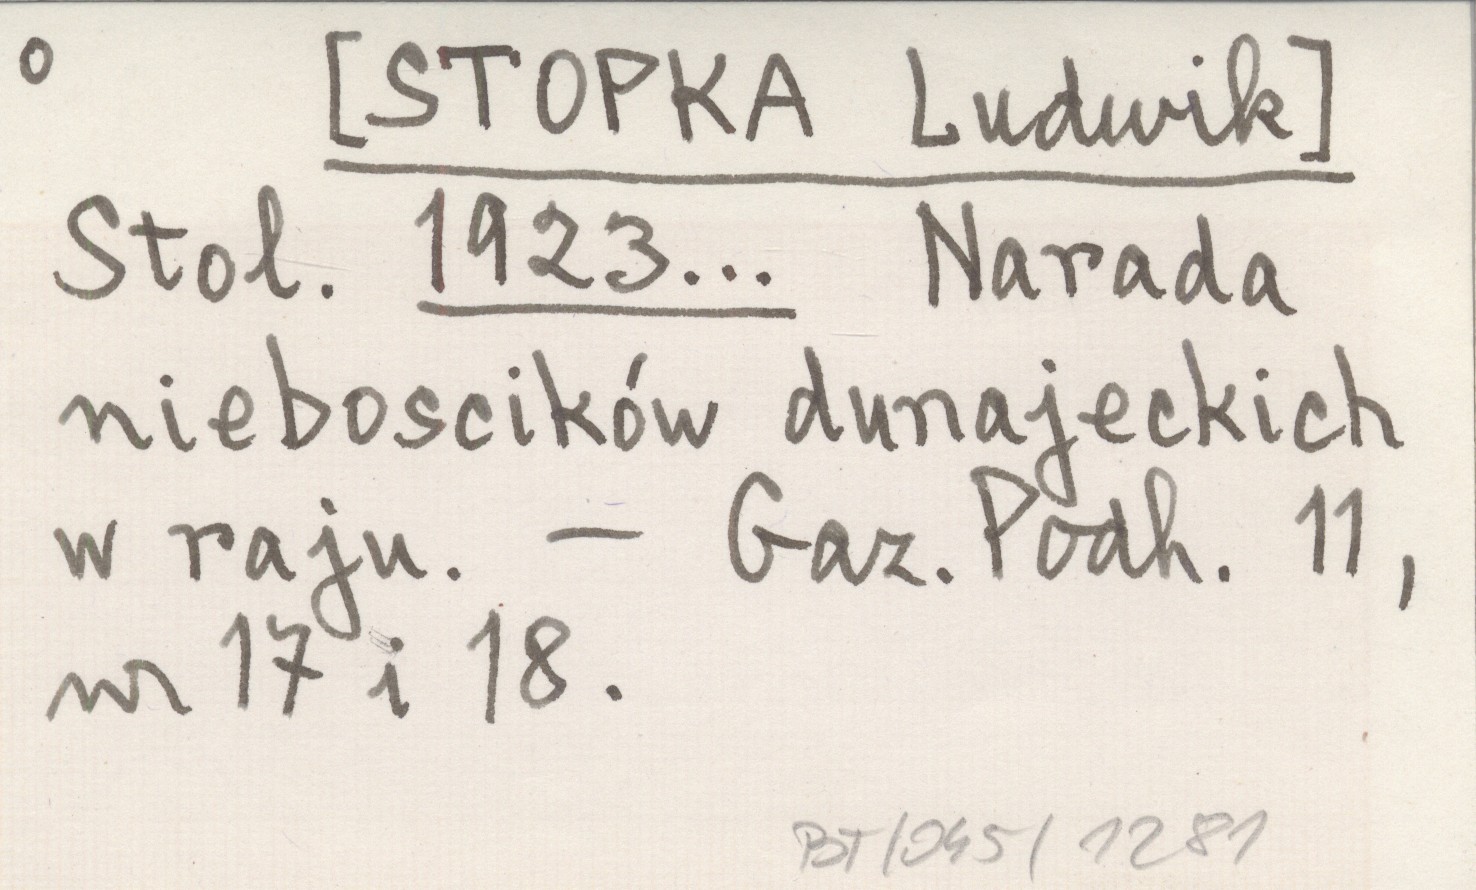 o [STOPKA Ludwik]
Stol. 1923... Narada
nieboscików dunajeckich
w raju. — Gaz. Podh. 11,
nr 17 i 18.
BT/045/1281